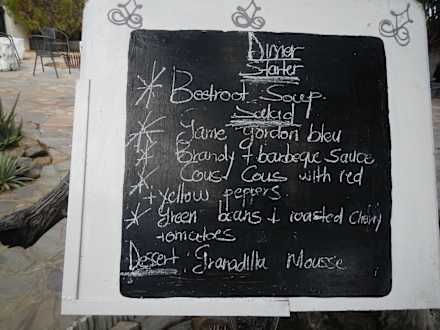 Dinner
Starter
* Beetroot Soup
Salad
* Game gordon bleu
* Brandy + barbeque Sauce
* Cous Cous with red
+ yellow peppers
* Green beans + roasted cherry
tomatoes
Dessert: Granadilla Mousse